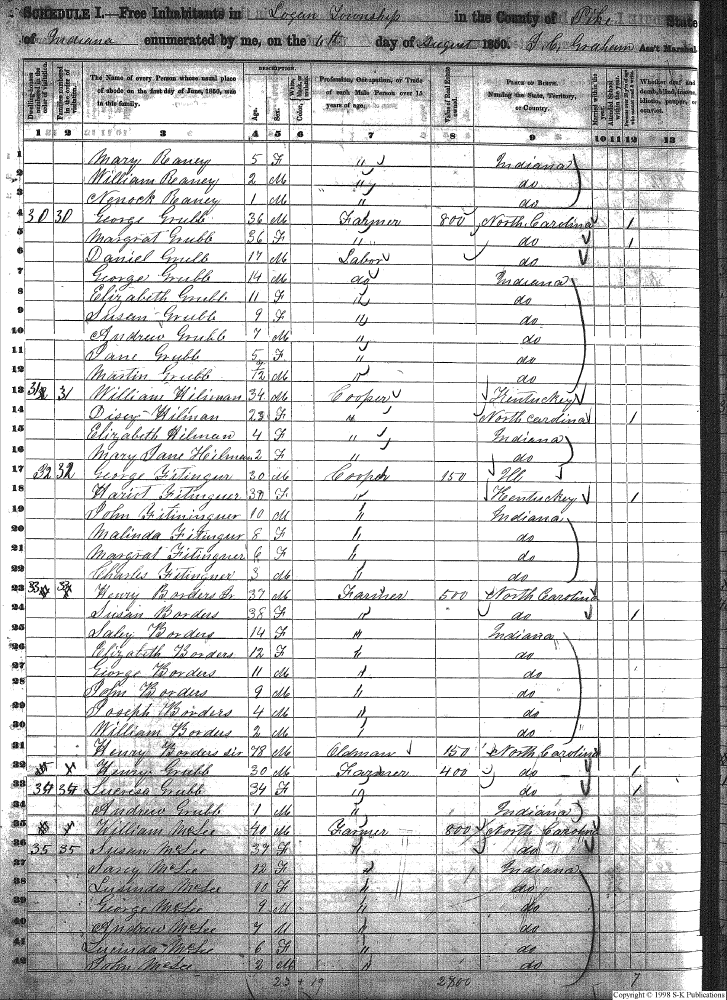 SCHEDULE I.—Free Inhabitants in Logan Township in the County of Pike State
of Indiana enumerated by me, on the 6th day of August 1850. J. C. Graham Ass't Marshal
DESCRIPTION.
The Name of every Person whose usual place of abode on the first day of June, 1850, was in this family.
Age.
Sex.
Profession, Occupation, or Trade of each Male Person over 15 years of age.
Value of Real Estate owned.
PLACE OF BIRTH. Naming the State, Territory, or Country.
1 2 3 4 5 6 7 8 9 10 11 12 13
1 Mary Raney 5 F " Indiana
2 William Raney 2 M " do
3 Raney 1 M " do
4 30 30 George Grubb 36 M Farmer 800 North Carolina 1
5 Margrat Grubb 36 F " do 1
6 Daniel Grubb 17 M Labor do
7 George Grubb 14 M do Indiana
8 Elizabeth Grubb 11 F " do
9 Susan Grubb 9 F " do
10 Andrew Grubb 7 M " do
11 Jane Grubb 5 F " do
12 Martin Grubb /12 M " do
13 31 31 William Hilman 34 M Cooper Kentuckey
14 Disey Hilman 23 F " North Cardina 1
15 Elizabeth Hilman 4 F " Indiana
16 Mary Jane Hilman 2 F " do
17 32 32 George Fitingur 30 M Cooper 150 Ill
18 Hariot Fitingner F " Kentuckey 1
19 John Fitininguer 10 M " Indiana
20 Malinda Fitingur 8 F " do
21 Margrat Fitingner 6 F " do
22 Charles Fitingner 3 M " do
23 33 33 Henry Borders Jr 37 M Farmer 500 North Carolina
24 Susan Borders 38 F " do 1
25 Saley Borders 14 F " Indiana
26 Elizabeth Borders 12 F " do
27 George Borders 11 M " do
28 John Borders 9 M " do
29 Joseph Borders 4 M " do
30 William Borders 2 M " do
31 Henry Borders sir 78 M Oldman 150 North Carolina
32 Henry Grubb 30 M Farmer 400 do 1
33 34 34 Lucresa Grubb 34 F " do 1
34 Andrew Grubb 1 M " Indiana
35 William McLee 40 M Farmer 800 North Carolina
36 35 35 Susan McLee 39 F " do
37 Sarey McLee 12 F " Indiana
38 Lusinda McLee 10 F " do
39 George McLee 9 M " do
40 Andrew McLee 7 M " do
41 Lucinda McLee 6 F " do
42 John McLee 2 M " do
23 + 19 2800 7
Copyright © 1998 S-K Publications